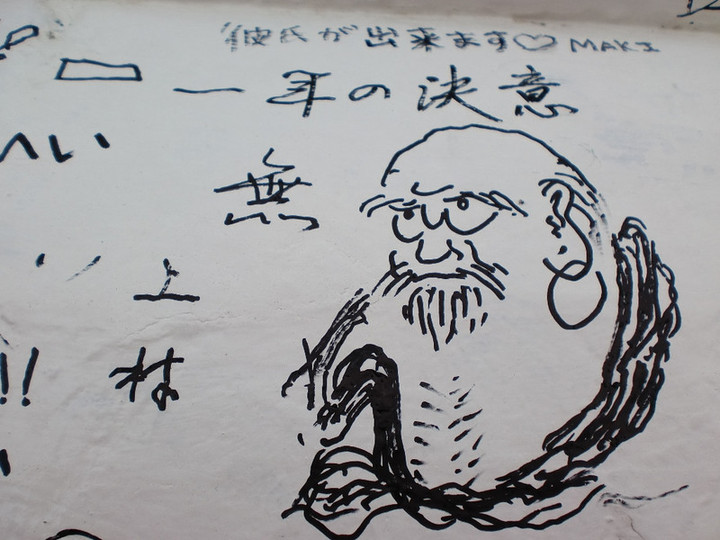 彼氏が出来ます♡MAKI
一年の決意
へい
無
上
村
!!